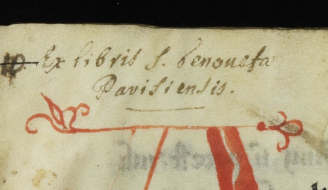 Ex libris S. Genouefæ
Parisiensis.